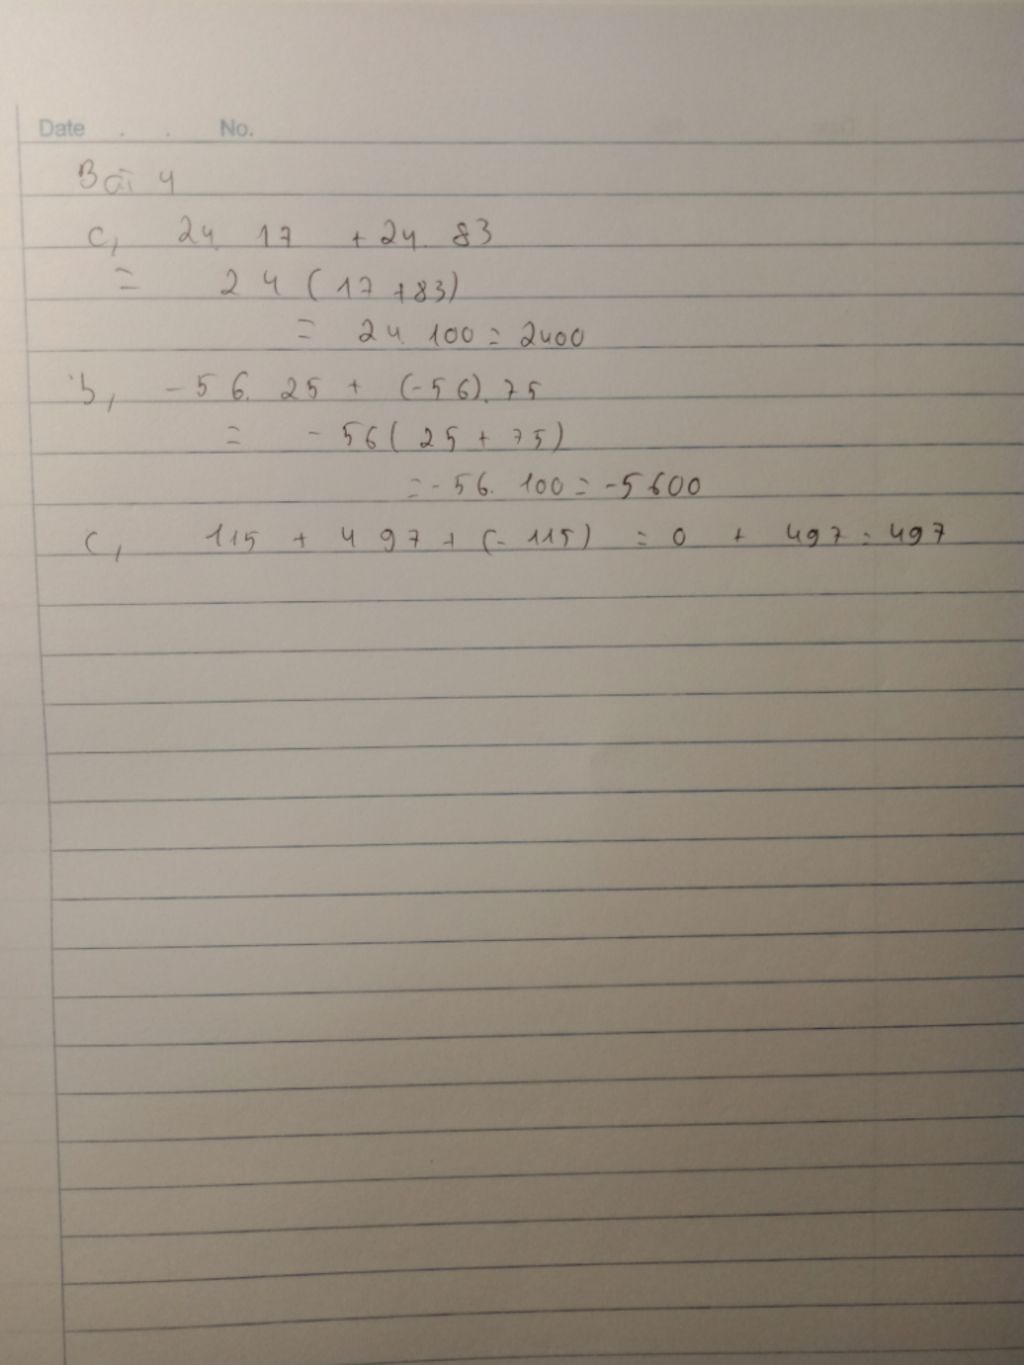 Date . . No.
Bài 4
c, 24. 17 + 24. 83
= 24 (17 + 83)
= 24. 100 = 2400
b, -56. 25 + (-56). 75
= -56( 25 + 75)
= -56. 100 = -5600
c, 115 + 497 + (-115) = 0 + 497 = 497